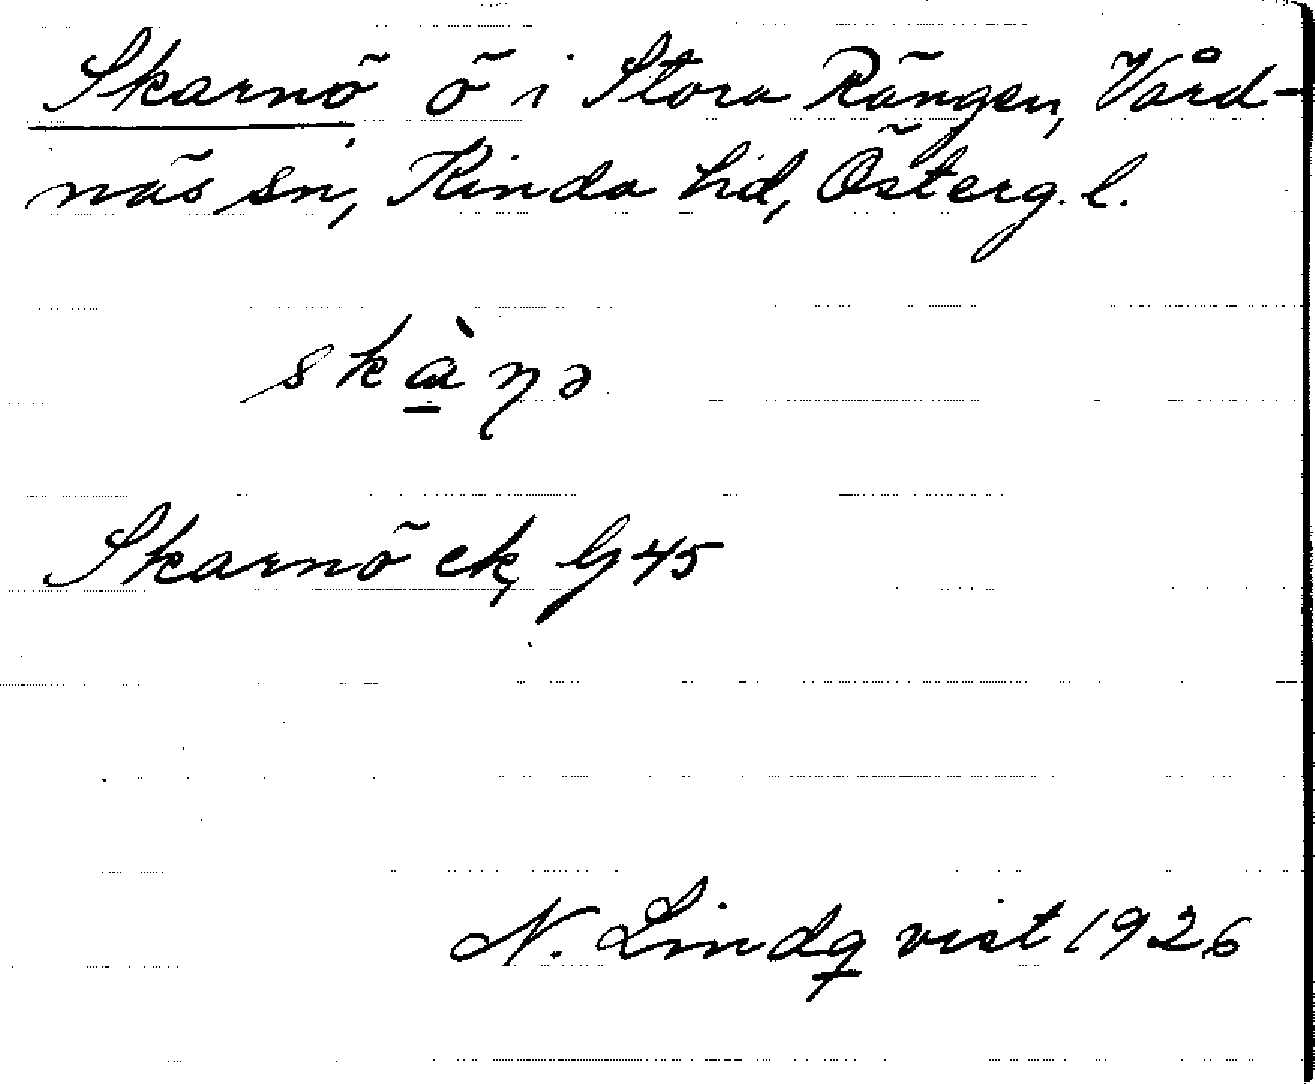 Skarnö ö i Stora Rängen, Vård-
näs sn, Kinda hd, Österg. l.
skàṇə
Skarnö ek, G 45
N. Lindqvist 1926